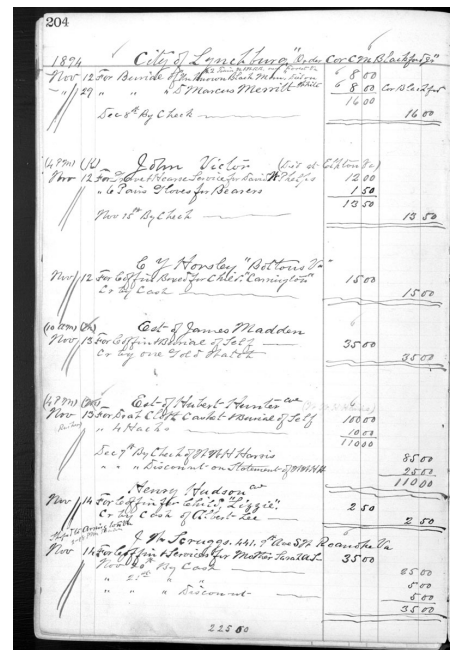 204
1894 City of Lynchburg, "Order Cor C M Blackford Jr"
Nov 12 For Burial of Unknown Black Man 8 00
" 29 " " " Marcus Merritt 8 00 Cor Blackford
16 00
Dec 8th By Check 16 00
(4 PM) John Victor
Nov 12 For Grave & Hearse Service for David H Phelps 12 00
" 6 Pairs Gloves for Bearers 1 50
13 50
Nov 15th By Check 13 50
C Y Horsley "Boltons Va"
Nov 12 For Coffin Boxed for Child "Carrington" 15 00
Cr by Cash 15 00
(10 AM) Est of James Madden
Nov 13 For Coffin & Burial of Self 35 00
Cr by one Gold Watch 35 00
(4 PM) Est of Hubert Hunter col
Nov 13 For Drab Cloth Casket & Burial of Self 100 00
" 4 Hacks 10 00
110 00
Dec 7th By Check of W H Harris 85 00
" " " Discount on Statement of 25 00
110 00
Henry Hudson col
Nov 14 For Coffin for Child "Lizzie" 2 50
Cr by Cash of Albert Lee 2 50
J W Scruggs. 441, 9th Ave S.W. Roanoke Va
Nov 14 For Coffin & Services for Mother Sarah A S 35 00
Nov 20th By Cash 25 00
" 21st " " 5 00
" " " Discount 5 00
35 00
225 00